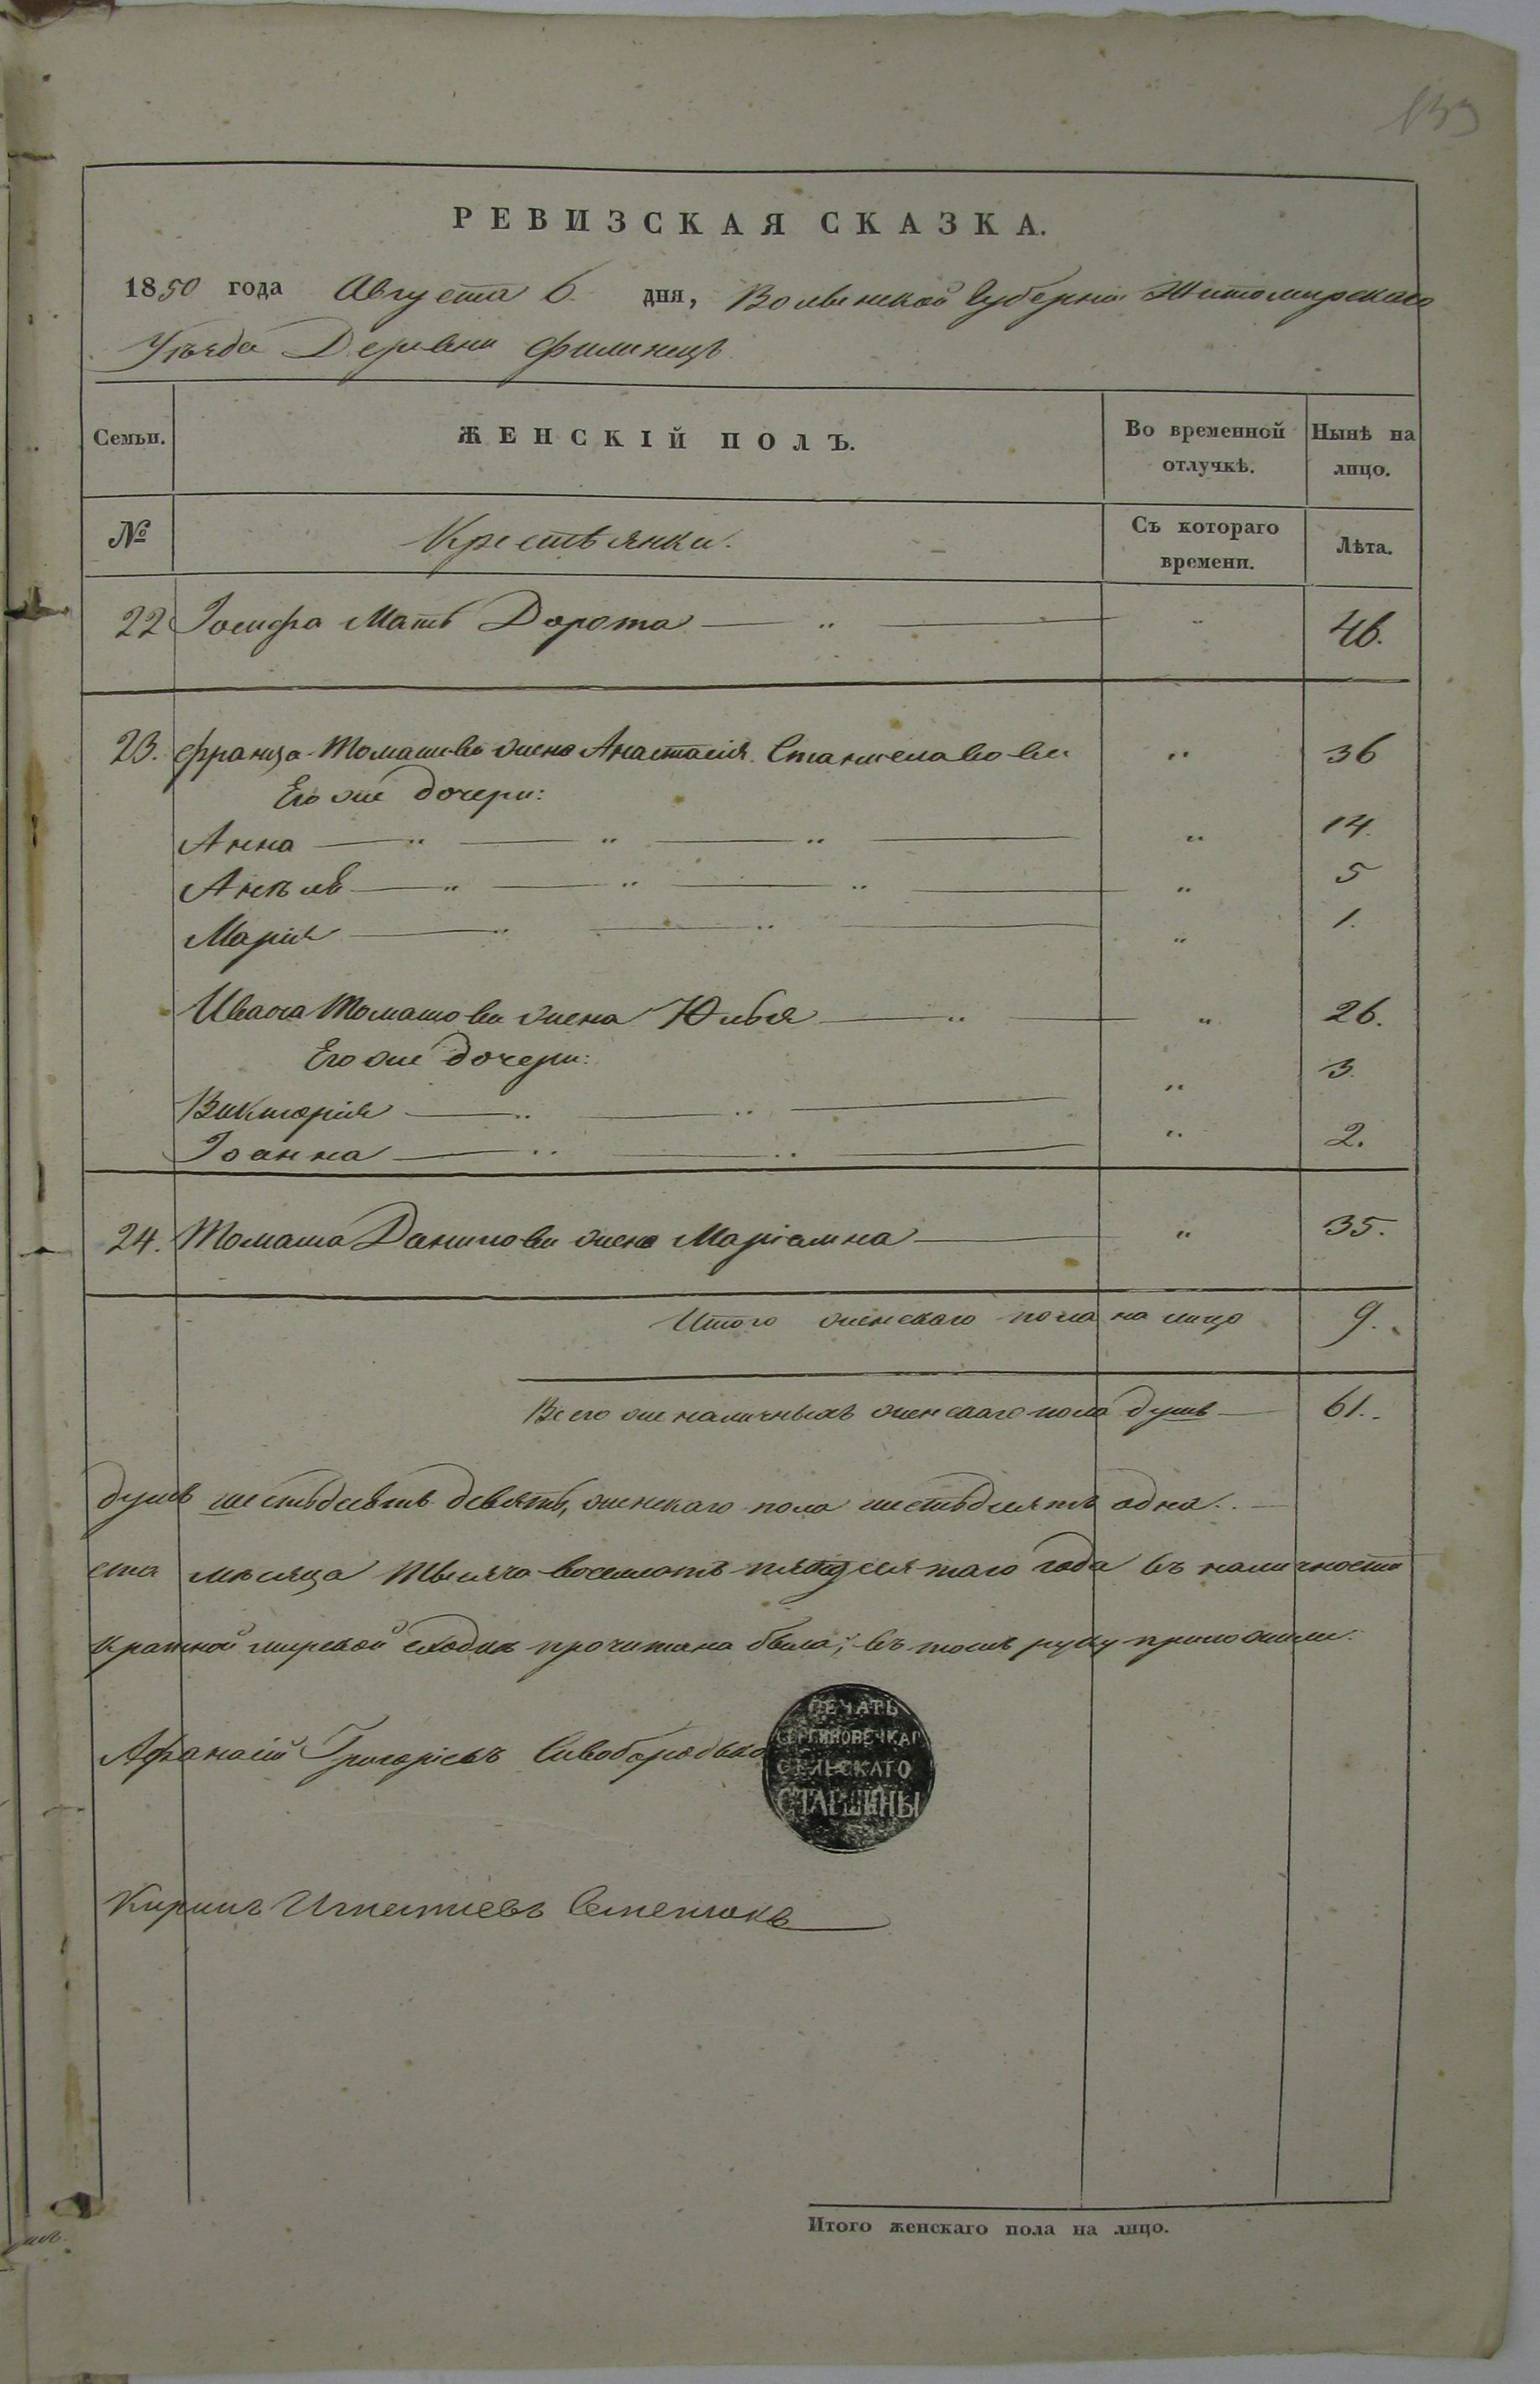 133
РЕВИЗСКАЯ СКАЗКА.
1850 года Августа 6 дня, Волынской Губерніи Житомирскаго
Уѣзда Деревни Филинецъ
Семьи. ЖЕНСКІЙ ПОЛЪ. Во временной отлучкѣ. Нынѣ на лицо.
№ Крестьянки. Съ котораго времени. Лѣта.
22 Іосифа Мать Дорота — „ — „ 46.
23. Франца Томашева жена Анастасія Станиславова „ 36
Его же дочери:
Анна — „ — „ — „ — „ 14.
Анѣля — „ — „ — „ — „ 5
Марія — „ — „ — „ 1.
Ивана Томашова жена Юлія — „ — „ 26.
Его же дочери:
Викторія — „ — „ — „ 3.
Іоанна — „ — „ — „ 2.
24. Томаша Данилова жена Маріанна — „ 35.
Итого женскаго пола на лицо 9.
Всего же наличныхъ женскаго пола душъ — 61.
душъ шестьдесятъ девять, женскаго пола шестьдесятъ одна.
ста мѣсяца тысяча восемсотъ пятдесятаго года въ наличности
кратной мирской сходкѣ прочитана была, въ томъ руку приложили:
Афанасій Григорьевъ Сивобородько
ПЕЧАТЬ
СЕЛЬСКАГО
СТАРШИНЫ
Кирилъ Игнатіевъ Семенюкъ
Итого женскаго пола на лицо.